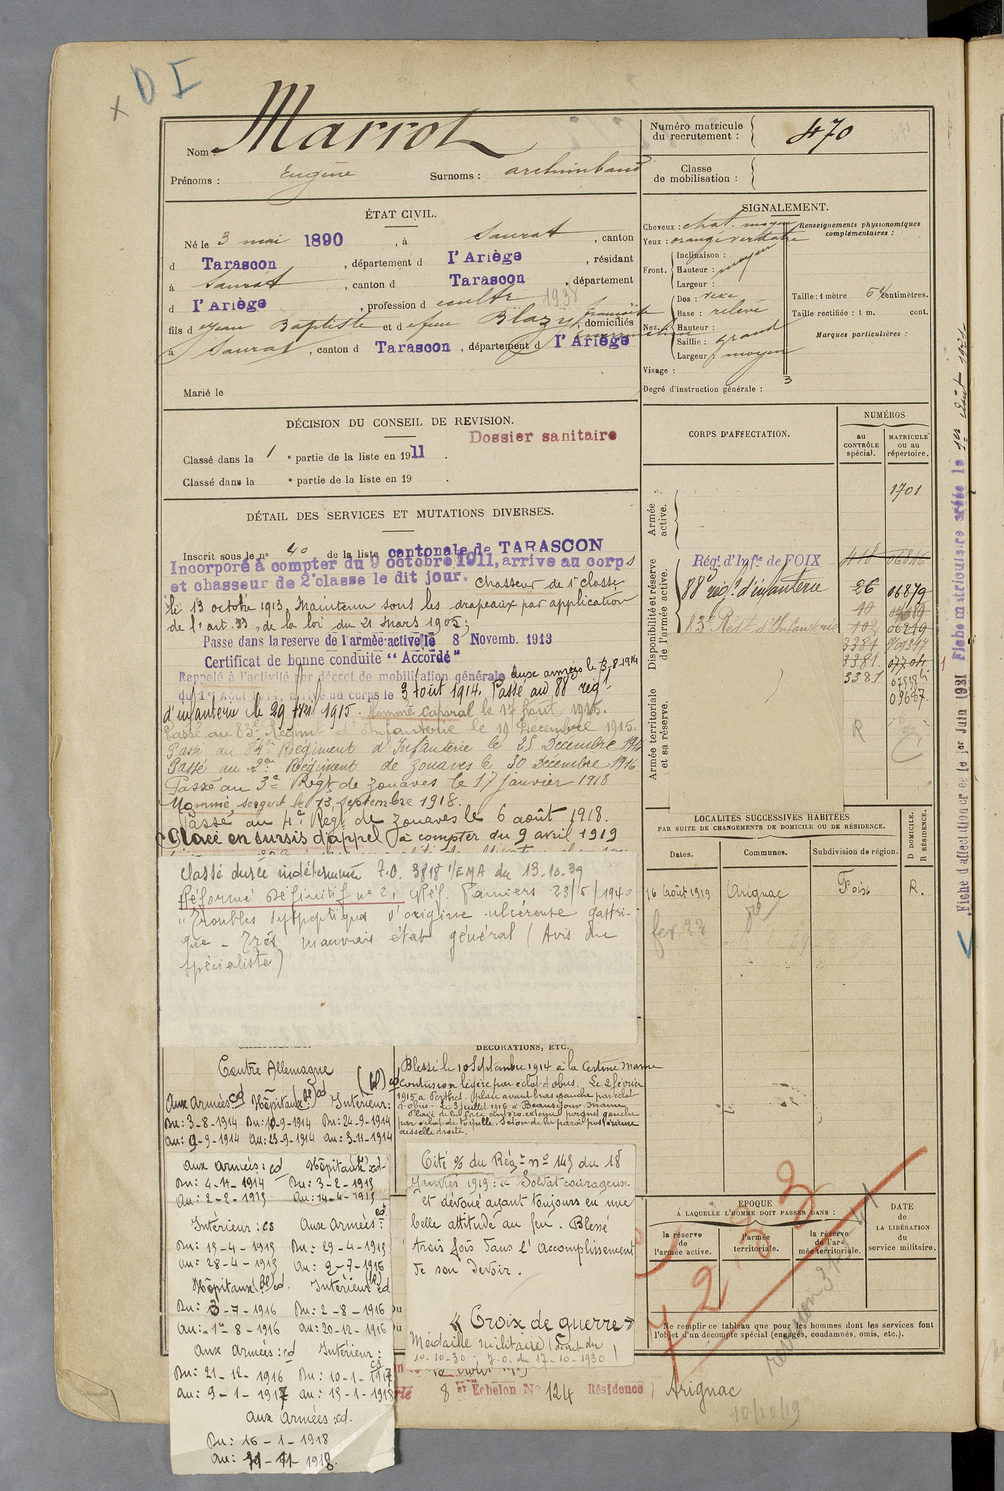 x D I
Nom : Marrot
Prénoms : Eugène Surnoms : archimbaud
Numéro matricule du recrutement : 470
Classe de mobilisation :
ÉTAT CIVIL.
Né le 3 mai 1890, à Saurat, canton
d Tarascon, département d l'Ariège, résidant
à Saurat, canton d Tarascon, département
d l'Ariège, profession d cultr 1938
fils d Jean Baptiste et d feue Blazy françoise, domiciliés
à Saurat, canton d Tarascon, département d l'Ariège
Marié le
SIGNALEMENT.
Cheveux : chat. moyen
Yeux : orangé verdâtre
Renseignements physionomiques complémentaires :
Front. Inclinaison :
Hauteur : moyen
Largeur :
Nez. Dos : vexe
Base : relevé
Hauteur :
Saillie : grand
Largeur : moyen
Visage :
Degré d'instruction générale : 3
Taille : 1 mètre 54 centimètres.
Taille rectifiée : 1 m. cent.
Marques particulières :
DÉCISION DU CONSEIL DE REVISION.
Dossier sanitaire
Classé dans la 1e partie de la liste en 1911.
Classé dans la e partie de la liste en 19 .
DÉTAIL DES SERVICES ET MUTATIONS DIVERSES.
Inscrit sous le n° 40 de la liste cantonale de TARASCON
Incorporé à compter du 9 octobre 1911, arrivé au corps
et chasseur de 2e classe le dit jour. Chasseur de 1e classe
le 13 octobre 1913. Maintenu sous les drapeaux par application
de l'art. 33 de la loi du 21 mars 1905;
Passé dans la réserve de l'armée active le 8 Novemb. 1913
Certificat de bonne conduite "Accordé"
Rappelé à l'activité par décret de mobilisation générale
du 1er Août 1914, arrivé au corps le 3 août 1914. Passé au 88e régt
aux armées le 3-8-1914
d'infanterie le 29 avril 1915. Nommé caporal le 17 Août 1915.
Passé au 83e Régiment d'Infanterie le 19 Décembre 1915.
Passé au 84e Régiment d'Infanterie le 25 Décembre 1916
Passé au 2eme Régiment de zouaves le 30 Décembre 1916
Passé au 3e Régt de zouaves le 17 janvier 1918
Nommé sergent le 13 septembre 1918.
Passé au 4e Régt de zouaves le 6 août 1918.
Placé en sursis d'appel à compter du 9 avril 1919
Classé durée indéterminée J.O. 3818 1/EMA du 13.10.39
Réformé définitif n° 2, Pamiers 23/5/1940
"Troubles dyspeptiques d'origine ulcéreuse gastri-
que - Très mauvais état général (Avis du
spécialiste)
CORPS D'AFFECTATION.
NUMÉROS
AU CONTRÔLE spécial.
MATRICULE ou au répertoire.
Armée active.
1701
Disponibilité et réserve de l'armée active.
Rég. d'Infie de FOIX
88e régt d'infanterie 26 06879
83e Régt d'Infanterie
3381
3381
3381 09687
Armée territoriale et sa réserve.
R
Fiche d'affectation créée le 1er Juin 1921 Fiche matriculaire créée le 1er Août 1921
LOCALITÉS SUCCESSIVES HABITÉES
PAR SUITE DE CHANGEMENTS DE DOMICILE OU DE RÉSIDENCE.
Dates. Communes. Subdivision de région. D DOMICILE. R RÉSIDENCE.
16 Août 1919 Arignac Foix R.
DÉCORATIONS, ETC.
Contre Allemagne
Aux Armées Hôpitaux Intérieur:
Du: 3-8-1914 Du: 10-9-1914 Du: 24-9-1914
Au: 9-9-1914 Au: 23-9-1914 Au: 3-11-1914
Aux armées: Hôpitaux
Du: 4-11-1914 Du: 3-2-1915
Au: 2-2-1915 Au: 14-4-1915
Intérieur: Aux Armées:
Du: 15-4-1915 Du: 29-4-1915
Au: 28-4-1915 Au: 2-7-1916
Hôpitaux Intérieur
Du: 3-7-1916 Du: 2-8-1916
Au: 1er 8-1916 Au: 20-12-1916
Aux armées: Intérieur:
Du: 21-12-1916 Du: 10-1-1917
Au: 9-1-1917 Au: 15-1-1918
Aux armées:
Du: 16-1-1918
Au: 11-11-1918.
Blessé le 10 Septembre 1914 à la Certine Marne
contusion légère par éclat d'obus. Le 2 février
1915 à Perthes, plaie avant bras gauche par éclat
d'obus. Le 3 juillet 1916 à Beauséjour Marne.
Plaie de la face externe poignet gauche
par éclat de torpille. Séton de la paroi postérieure
aisselle droite.
Cité % du Régt n° 145 du 18
Janvier 1919: "Soldat courageux
et dévoué ayant toujours eu une
belle attitude au feu. Blessé
trois fois dans l'accomplissement
de son devoir.
« Croix de guerre »
Médaille militaire (Décret du
10-10-30; J.O. du 17-10-1930)
EPOQUE
À LAQUELLE L'HOMME DOIT PASSER DANS :
la réserve de l'armée active.
l'armée territoriale.
la réserve de l'armée territoriale.
DATE DE LA LIBÉRATION du service militaire.
Ne remplir ce tableau que pour les hommes dont les services font
l'objet d'un décompte spécial (engagés, condamnés, omis, etc.).
8e Echelon N° 124 Résidence Arignac
10/10/19